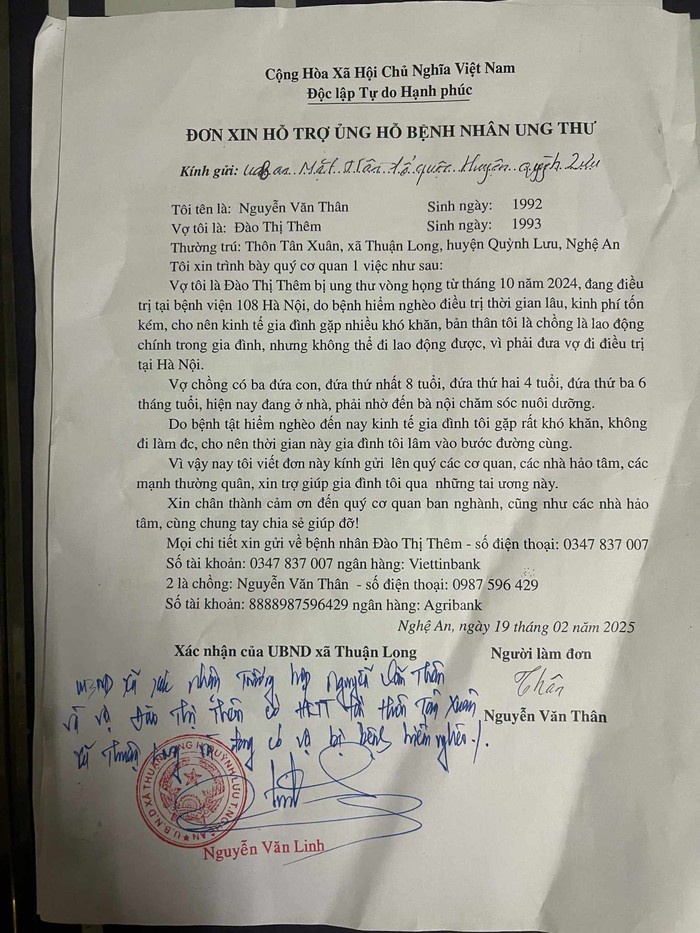 Cộng Hòa Xã Hội Chủ Nghĩa Việt Nam
Độc lập Tự do Hạnh phúc
ĐƠN XIN HỖ TRỢ ỦNG HỘ BỆNH NHÂN UNG THƯ
Kính gửi: Uỷ ban Mặt trận tổ quốc Huyện Quỳnh Lưu
Tôi tên là: Nguyễn Văn Thân Sinh ngày: 1992
Vợ tôi là: Đào Thị Thêm Sinh ngày: 1993
Thường trú: Thôn Tân Xuân, xã Thuận Long, huyện Quỳnh Lưu, Nghệ An
Tôi xin trình bày quý cơ quan 1 việc như sau:
Vợ tôi là Đào Thị Thêm bị ung thư vòng họng từ tháng 10 năm 2024, đang điều
trị tại bệnh viện 108 Hà Nội, do bệnh hiểm nghèo điều trị thời gian lâu, kinh phí tốn
kém, cho nên kinh tế gia đình gặp nhiều khó khăn, bản thân tôi là chồng là lao động
chính trong gia đình, nhưng không thể đi lao động được, vì phải đưa vợ đi điều trị
tại Hà Nội.
Vợ chồng có ba đứa con, đứa thứ nhất 8 tuổi, đứa thứ hai 4 tuổi, đứa thứ ba 6
tháng tuổi, hiện nay đang ở nhà, phải nhờ đến bà nội chăm sóc nuôi dưỡng.
Do bệnh tật hiểm nghèo đến nay kinh tế gia đình tôi gặp rất khó khăn, không
đi làm đc, cho nên thời gian này gia đình tôi lâm vào bước đường cùng.
Vì vậy nay tôi viết đơn này kính gửi lên quý các cơ quan, các nhà hảo tâm, các
mạnh thường quân, xin trợ giúp gia đình tôi qua những tai ương này.
Xin chân thành cảm ơn đến quý cơ quan ban nghành, cũng như các nhà hảo
tâm, cùng chung tay chia sẻ giúp đỡ!
Mọi chi tiết xin gửi về bệnh nhân Đào Thị Thêm - số điện thoại: 0347 837 007
Số tài khoản: 0347 837 007 ngân hàng: Viettinbank
2 là chồng: Nguyễn Văn Thân - số điện thoại: 0987 596 429
Số tài khoản: 8888987596429 ngân hàng: Agribank
Nghệ An, ngày 19 tháng 02 năm 2025
Xác nhận của UBND xã Thuận Long Người làm đơn
UBND xã xác nhận trường hợp Nguyễn Văn Thân
và vợ Đào Thị Thêm có HKTT tại thôn Tân Xuân
xã Thuận Long có vợ bị bệnh hiểm nghèo./.
Thân
Nguyễn Văn Thân
U.B.N.D XÃ THUẬN LONG H.QUỲNH LƯU T.NGHỆ AN
Nguyễn Văn Linh